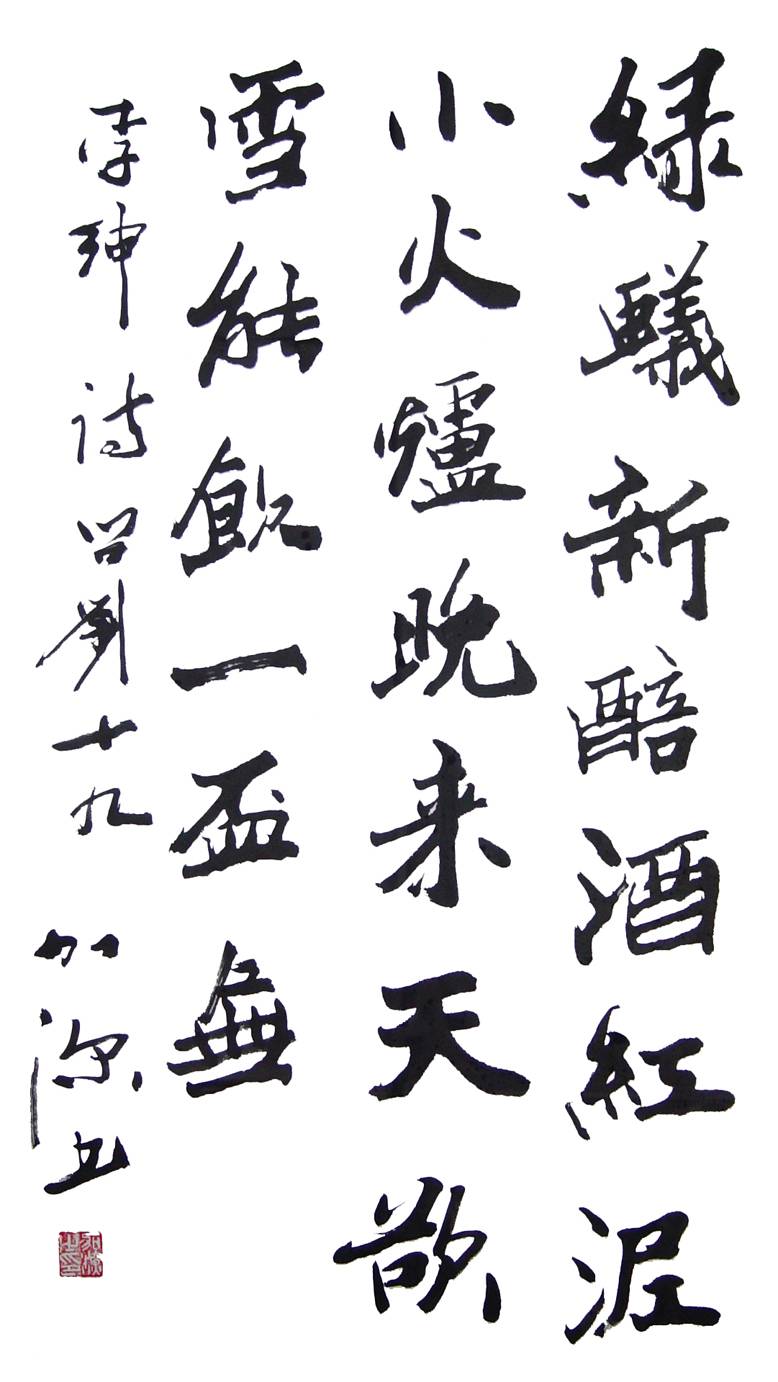 綠蟻新醅酒紅泥
小火爐晚来天欲
雪能飲一盃無
李珅诗問劉十九 加源书